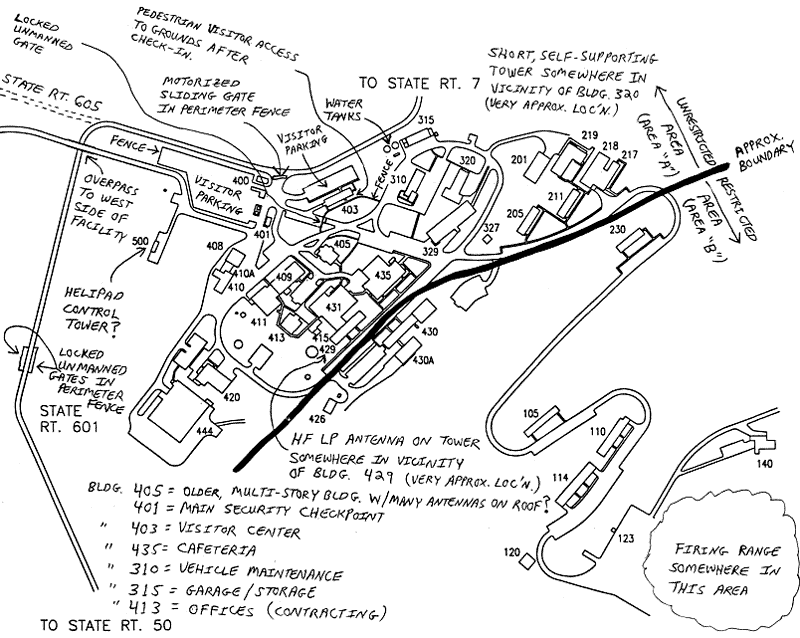 LOCKED
UNMANNED
GATE
PEDESTRIAN VISITOR ACCESS
TO GROUNDS AFTER
CHECK-IN.
MOTORIZED
SLIDING GATE
IN PERIMETER FENCE
TO STATE RT. 7
SHORT, SELF-SUPPORTING
TOWER SOMEWHERE IN
VICINITY OF BLDG. 320
(VERY APPROX. LOC'N.)
UNRESTRICTED
AREA
(AREA "A")
APPROX.
BOUNDARY
RESTRICTED
AREA
(AREA "B")
STATE RT. 605
WATER
TANKS
VISITOR
PARKING
FENCE
FENCE
VISITOR
PARKING
OVERPASS
TO WEST
SIDE OF
FACILITY
HELIPAD
CONTROL
TOWER?
LOCKED
UNMANNED
GATES IN
PERIMETER
FENCE
STATE
RT. 601
315
320
310
400
403
401
201
219
218
217
211
205
327
329
230
500
408
410A
410
405
409
435
431
411
413
415
429
430
430A
420
426
444
105
110
114
120
123
140
HF LP ANTENNA ON TOWER
SOMEWHERE IN VICINITY
OF BLDG. 429 (VERY APPROX. LOC'N.)
BLDG. 405 = OLDER, MULTI-STORY BLDG. W/MANY ANTENNAS ON ROOF?
" 401 = MAIN SECURITY CHECKPOINT
" 403 = VISITOR CENTER
" 435 = CAFETERIA
" 310 = VEHICLE MAINTENANCE
" 315 = GARAGE/STORAGE
" 413 = OFFICES (CONTRACTING)
FIRING RANGE
SOMEWHERE IN
THIS AREA
TO STATE RT. 50